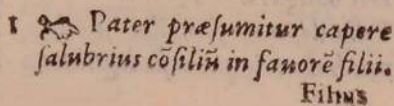 1 ☞ Pater præſumitur capere
ſalubrius cõſiliũ in fauorẽ filii.
Filius